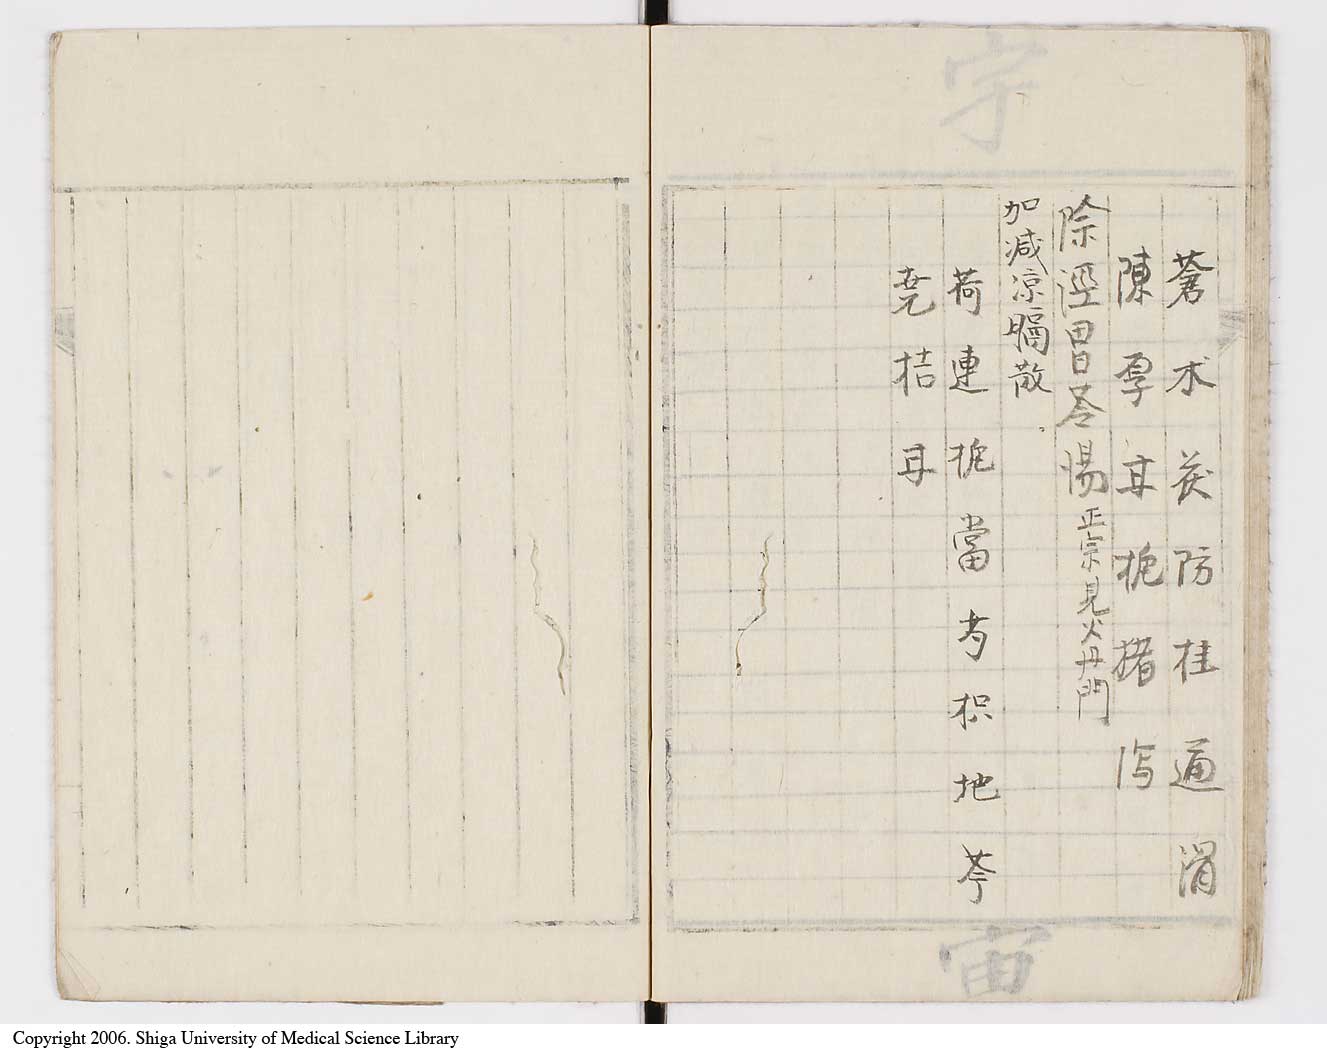 蒼 朮 茯 防 桂 通 滑
陳 厚 甘 梔 猪 瀉
除湿胃苓湯 正宗見火丹門
加減凉膈散
荷 連 梔 當 芍 枳 地 芩
芫 桔 甘
宇
宙
Copyright 2006. Shiga University of Medical Science Library